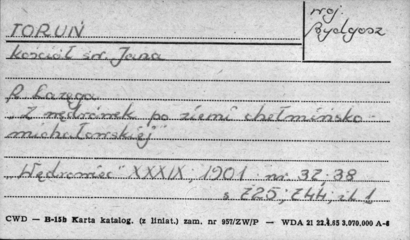 TORUŃ
woj.
Bydgosz
kościół św. Jana
R Łazęga
"Z wędrówek po ziemi chełmińsko
michałowskiej"
"Wędrowiec" XXXIX, 1901 nr 37; 38
s 725; 744, il 1
CWD — H-15b Karta katalog. (z liniat.) zam. nr 957/ZW/P — WDA 21 22.4.65 3.070.000 A-6